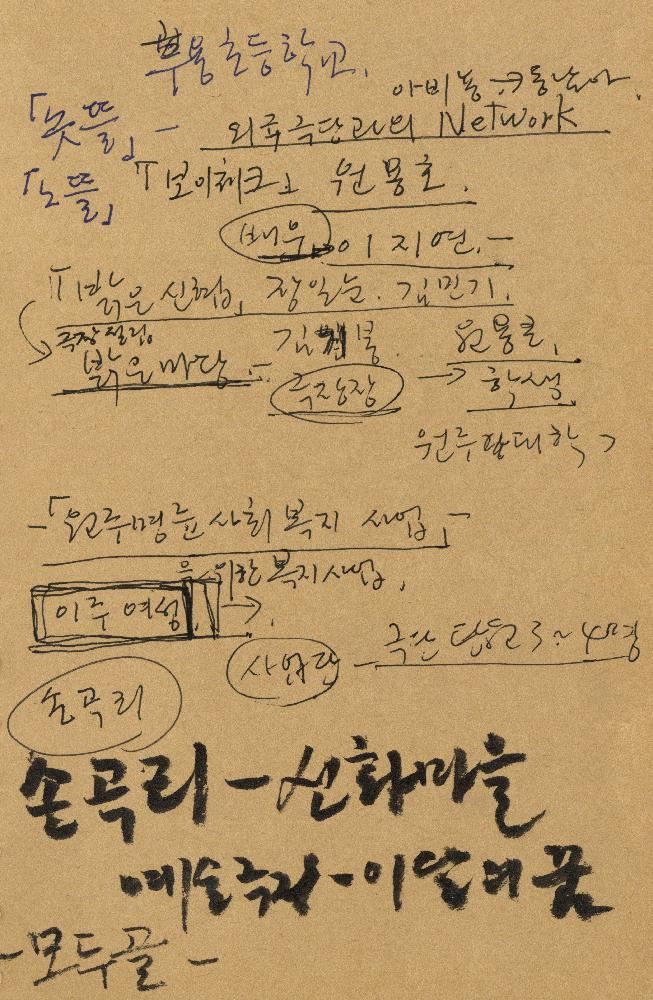 부용초등학교.
아비뇽 → 동남아.
「놋뜰」 - 외국극단과의 Network
「노뜰」 「보이체크」 원용호.
배우 이지연. -
「밝은 신협」 장일순. 김민기.
극장 건립.
밝은마당 - 김 봉. 원용호.
극장장 → 학생.
원주 대학
-「원주명륜사회복지 사업」-
을 위한 복지사업,
이주 여성 →.
사업단 - 극단 단원 3~4명
손곡리
손곡리 - 신화마을
예술극장 - 이달의 꿈
- 모두골 -